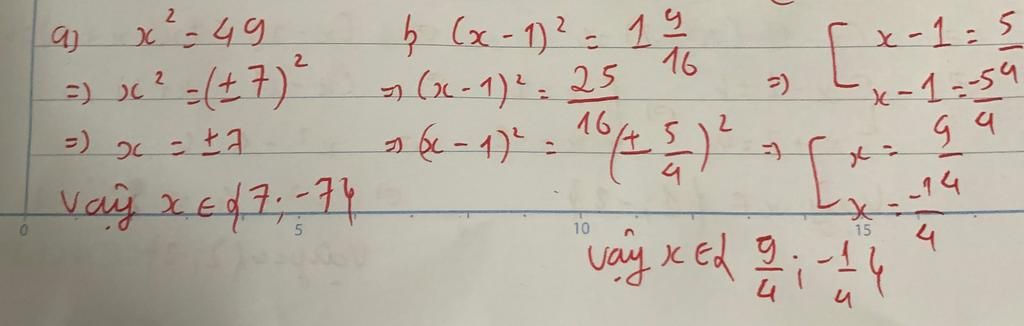 a) x² = 49
=) x² = (±7)²
=) x = ±7
Vậy x ∈ {7; -7}
b, (x - 1)² = 1 9/16
=) (x - 1)² = 25/16
=) (x - 1)² = (± 5/4)²
=) [ x - 1 = 5/4
x - 1 = -5/4
=) [ x = 9/4
x = -1/4
Vậy x ∈ { 9/4 ; -1/4 }
0 5 10 15